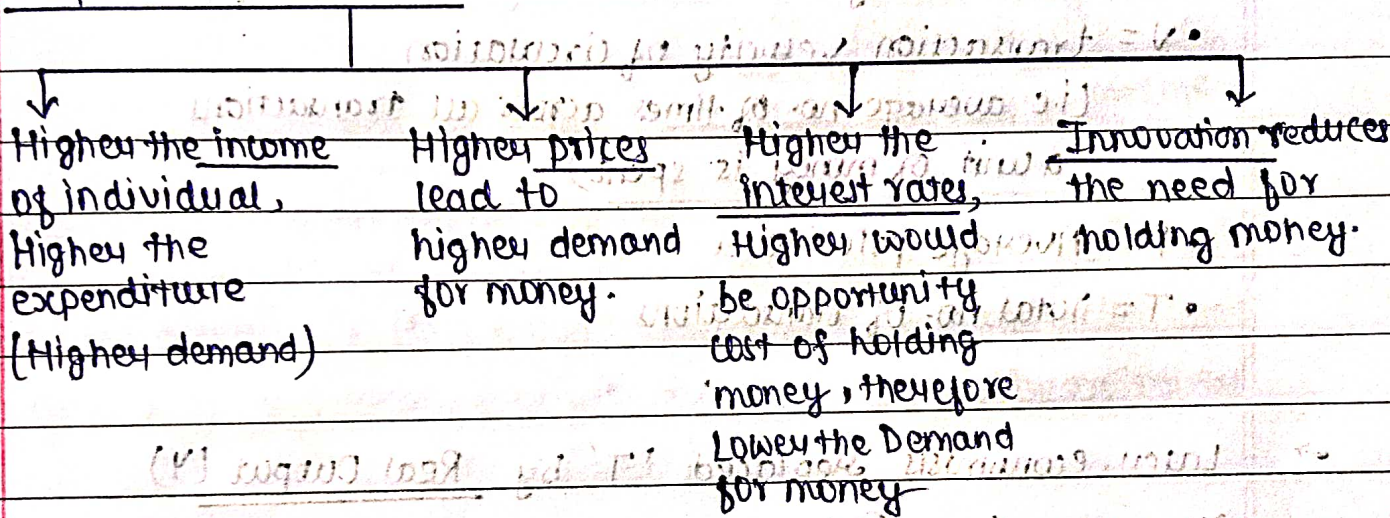 Higher the income
of individual,
Higher the
expenditure
(Higher demand)
Higher prices
lead to
higher demand
for money.
Higher the
interest rates,
Higher would
be opportunity
cost of holding
money, therefore
Lower the Demand
for money
Innovation reduces
the need for
holding money.